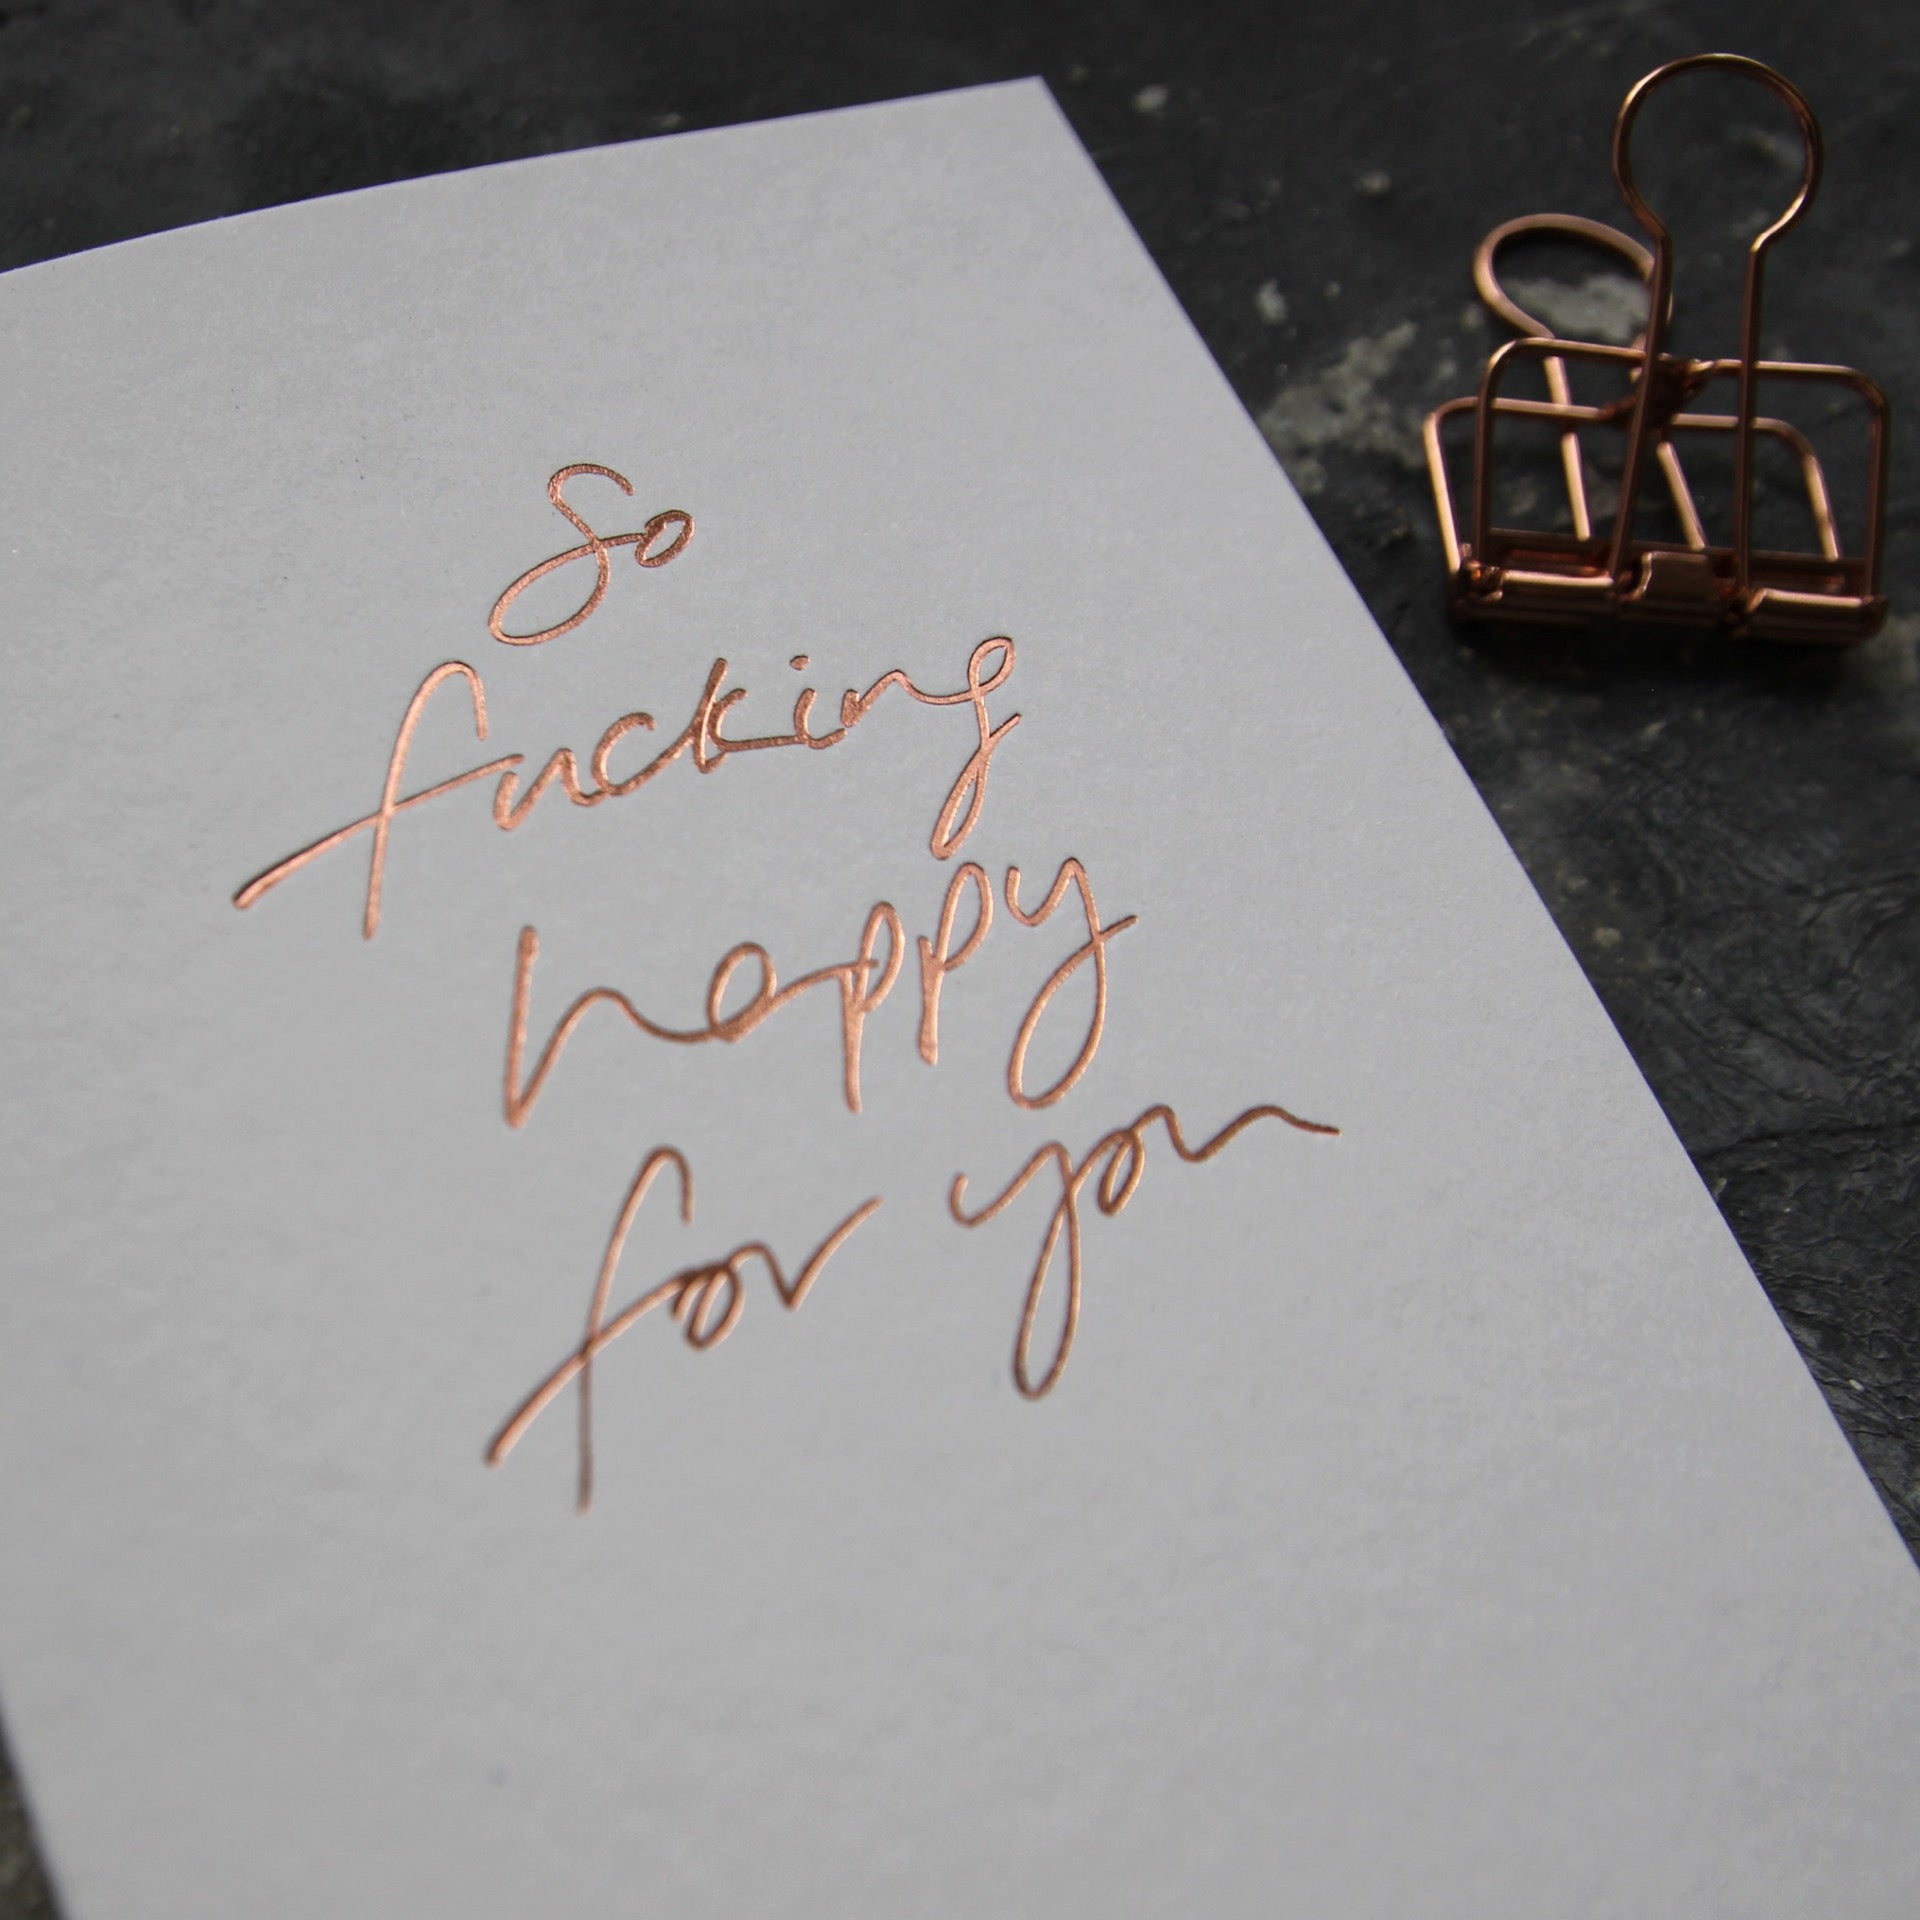 So
fucking
happy
for you